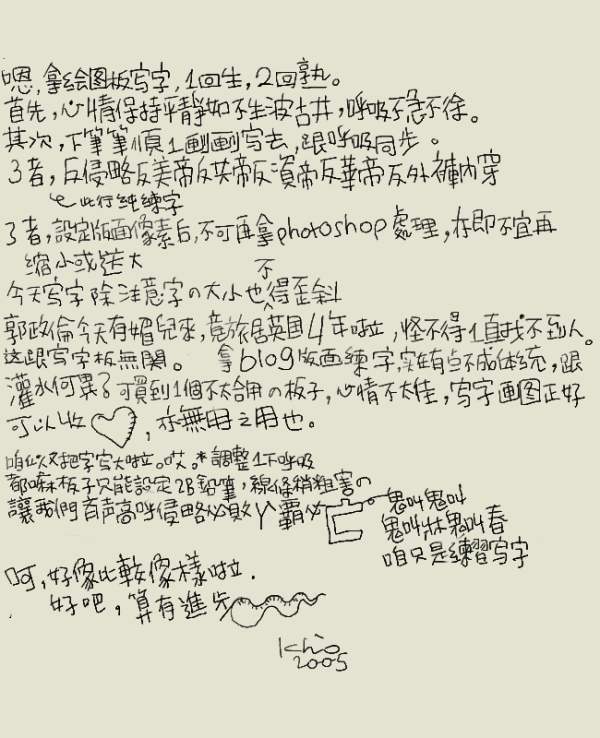 嗯,拿绘图板写字,1回生,2回熟。
首先,心情保持平靜如不生波古井,呼吸不急不徐。
其次,下筆筆順1畫畫写去,跟呼吸同步。
3者,反侵略反美帝反共帝反演帝反華帝反外褲內穿
此行純練字
3者,設定版面像素后,不可再拿photoshop處理,亦即不宜再
縮小或送大
不
今天写字除注意字の大小也得歪斜
郭政倫今天有媚兒來,竟旅居英国4年啦,怪不得1直找不到人。
这跟写字板無関。 拿blog版面練字,实在有点不成体统,跟
灌水何異?可買到1個不太合用の板子,心情不太佳,写字画图正好
可以收 ,亦無用之用也。
咱以又把字写大啦。哎。*調整1下呼吸
都嘛板子只能設定2B鉛筆,線條稍粗害の
讓我們育声高呼侵略必敗 霸必
鬼叫鬼叫
鬼叫 鬼叫春
咱只是練習写字
呵,好像比較像樣啦.
好吧,算有進步
Khio
2005